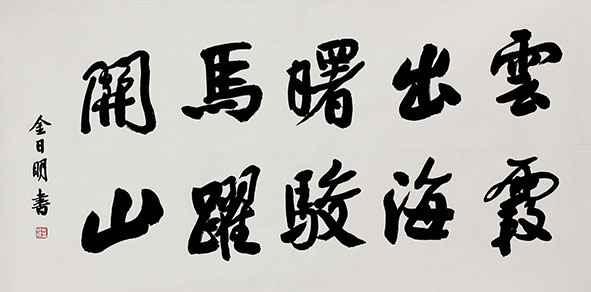 雲霞
出海
曙駿
馬躍
開山
金日明書